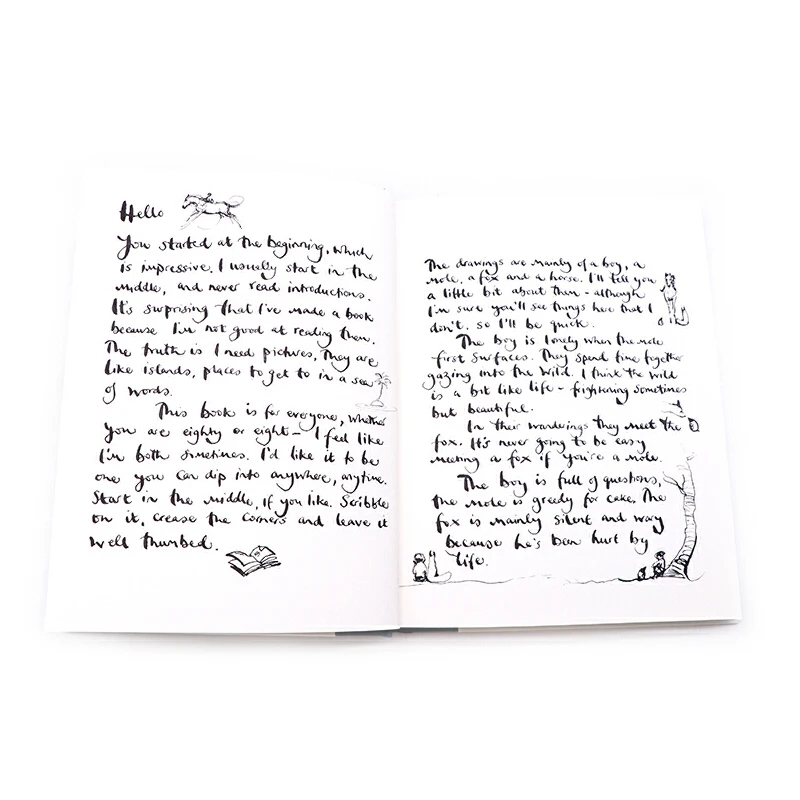 Hello
You started at the beginning, which
is impressive. I usually start in the
middle, and never read introductions.
It's surprising that I've made a book
because I'm not good at reading them.
The truth is I need pictures, They are
like islands, places to get to in a sea
of words.
This book is for everyone, whether
you are eighty or eight – I feel like
I'm both sometimes. I'd like it to be
one you can dip into anywhere, anytime.
Start in the middle, if you like. Scribble
on it, crease the corners and leave it
well thumbed.
The drawings are mainly of a boy, a
mole, a fox and a horse. I'll tell you
a little bit about them – although
I'm sure you'll see things here that I
don't, so I'll be quick.
The boy is lonely when the mole
first surfaces. They spend time together
gazing into the wild. I think the wild
is a bit like life – frightening sometimes
but beautiful.
In their wanderings they meet the
fox. It's never going to be easy
meeting a fox if you're a mole.
The boy is full of questions,
the mole is greedy for cake. The
fox is mainly silent and wary
because he's been hurt by
life.